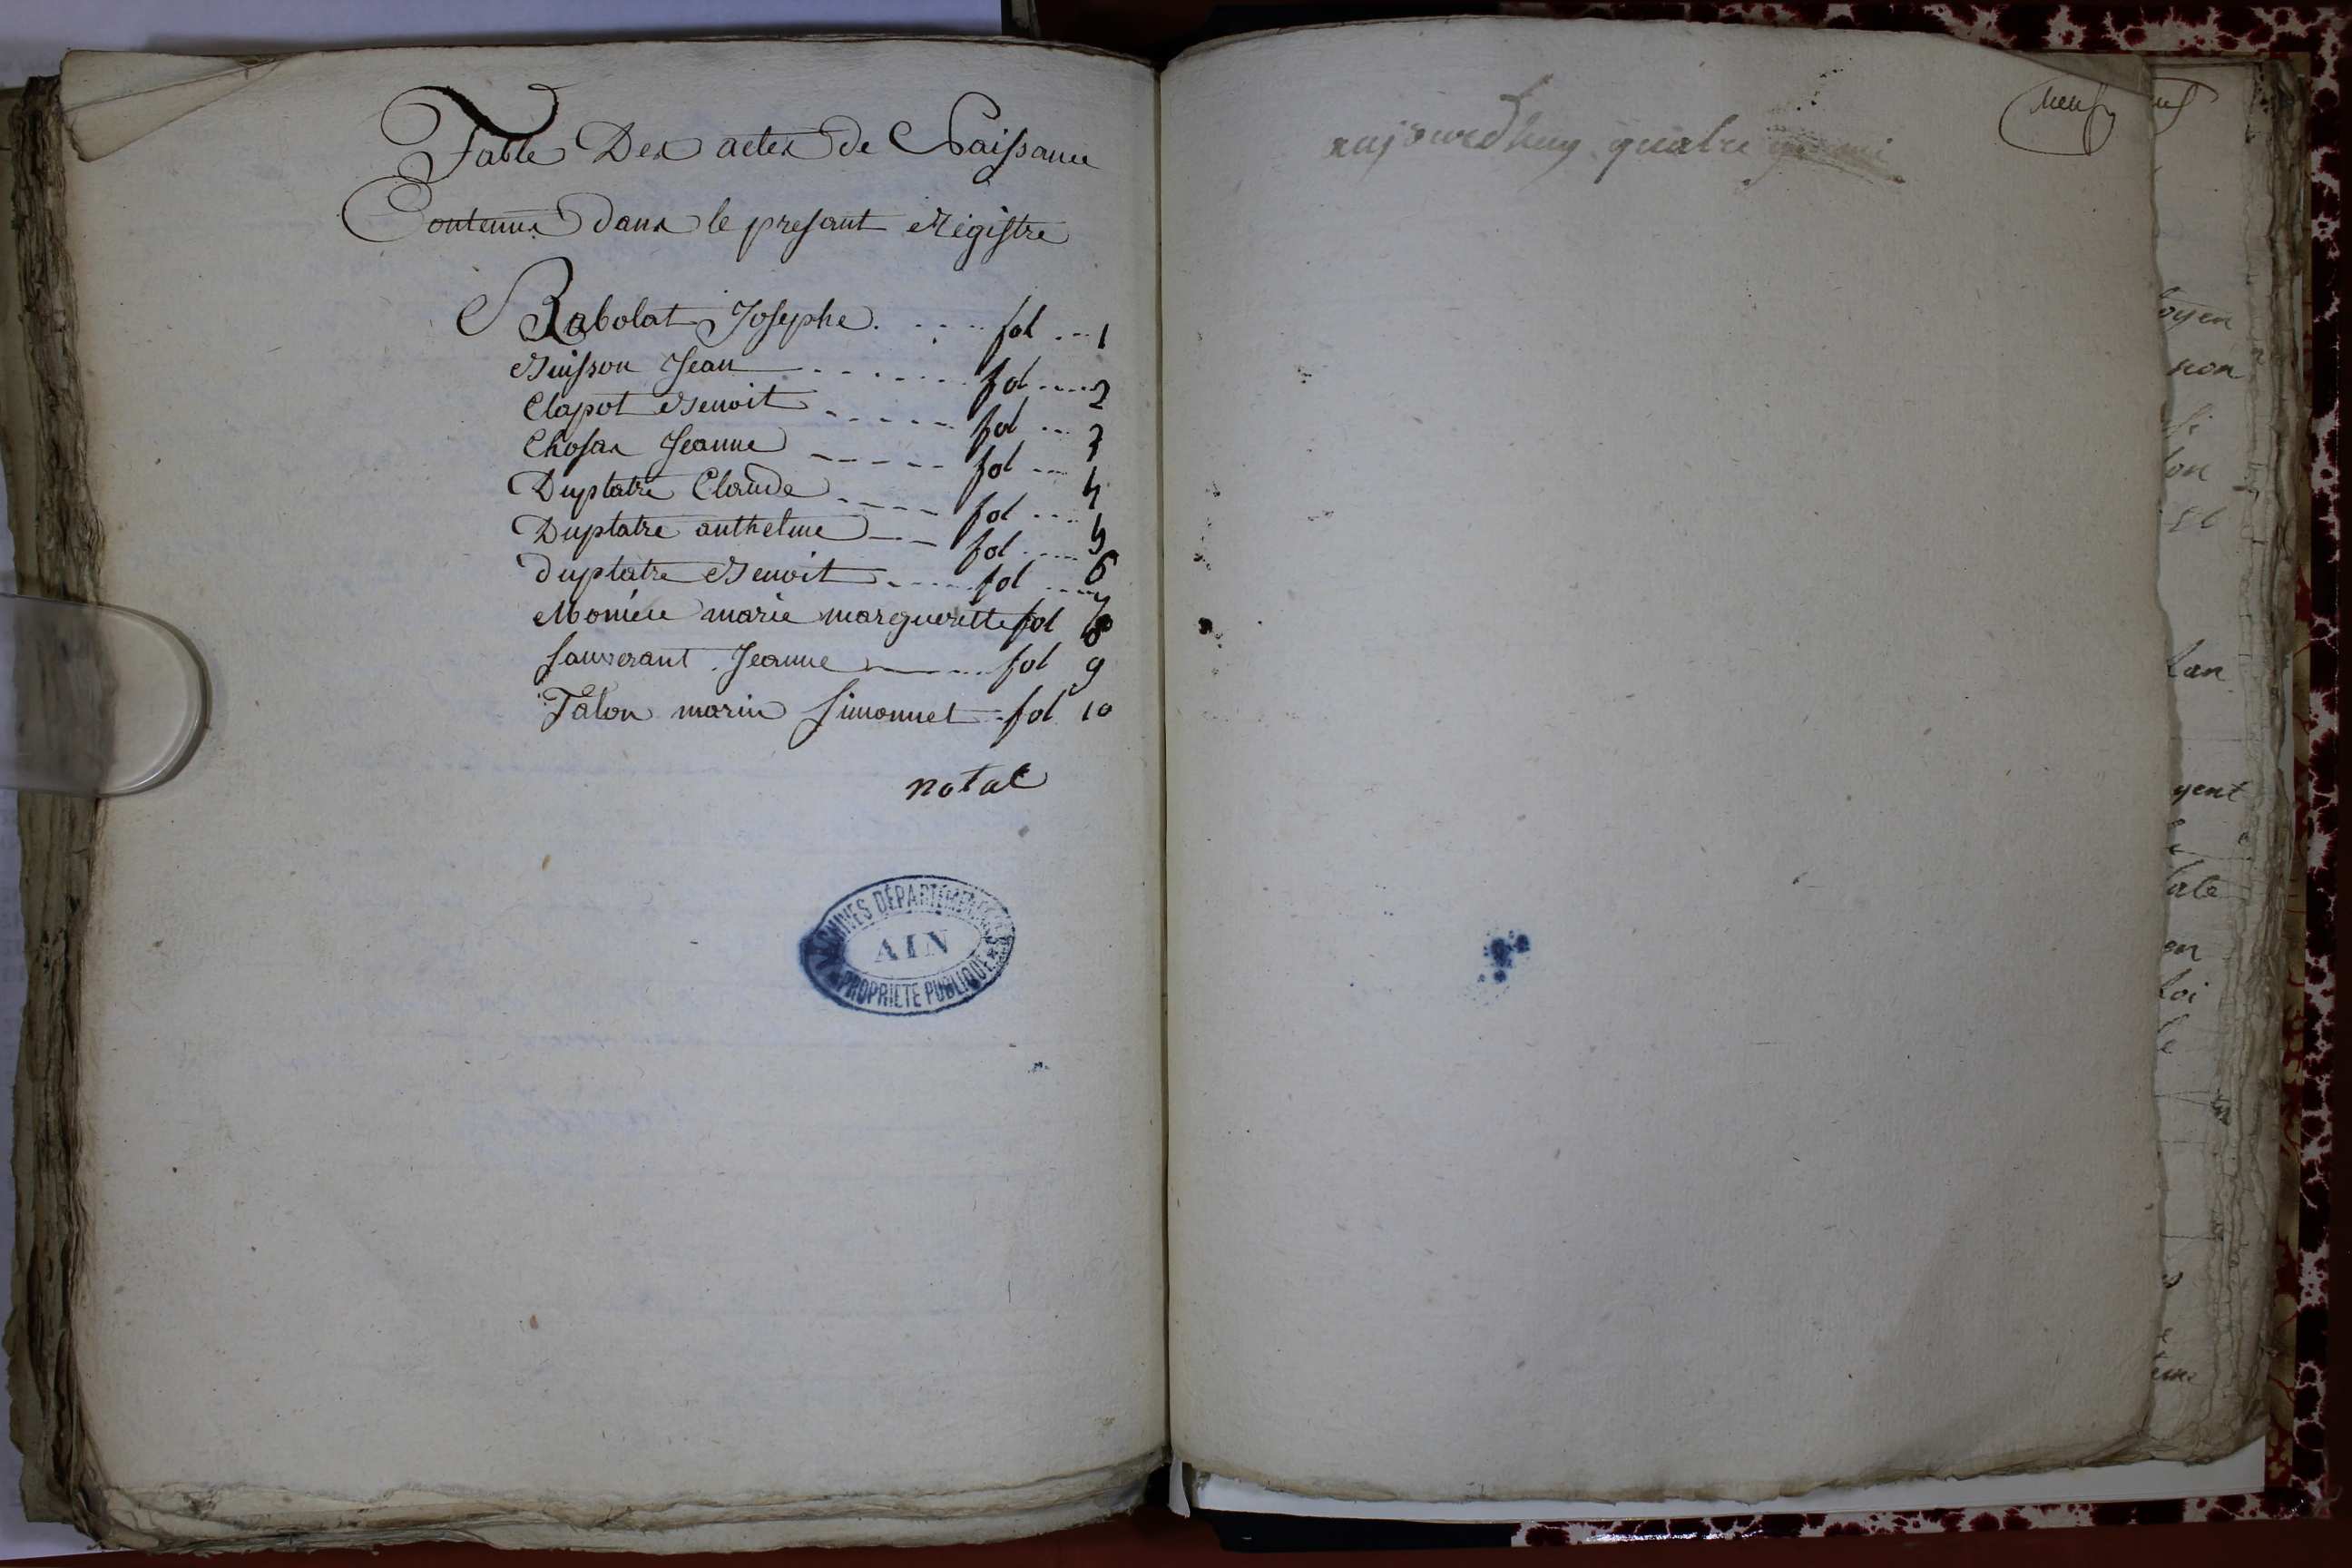 Table Des actes de Naissance
Contenus dans le presant Registre
Rabolat Josephe. fol 1
Buisson Jean fol 2
Clapot Benoit fol 3
Chosas Jeanne fol 4
Duplatre Claude fol 5
Duplatre anthelme fol 6
duplatre Benoit fol 7
Moniere marie margueritte fol 8
Sauverant Jeanne fol 9
Talon marin Simonnet fol 10
notat
ARCHIVES DÉPARTEMENTALES
AIN
PROPRIETE PUBLIQUE
aujourdhuy quatre
oyen
non
lon
lan
yent
late
on
loi
le